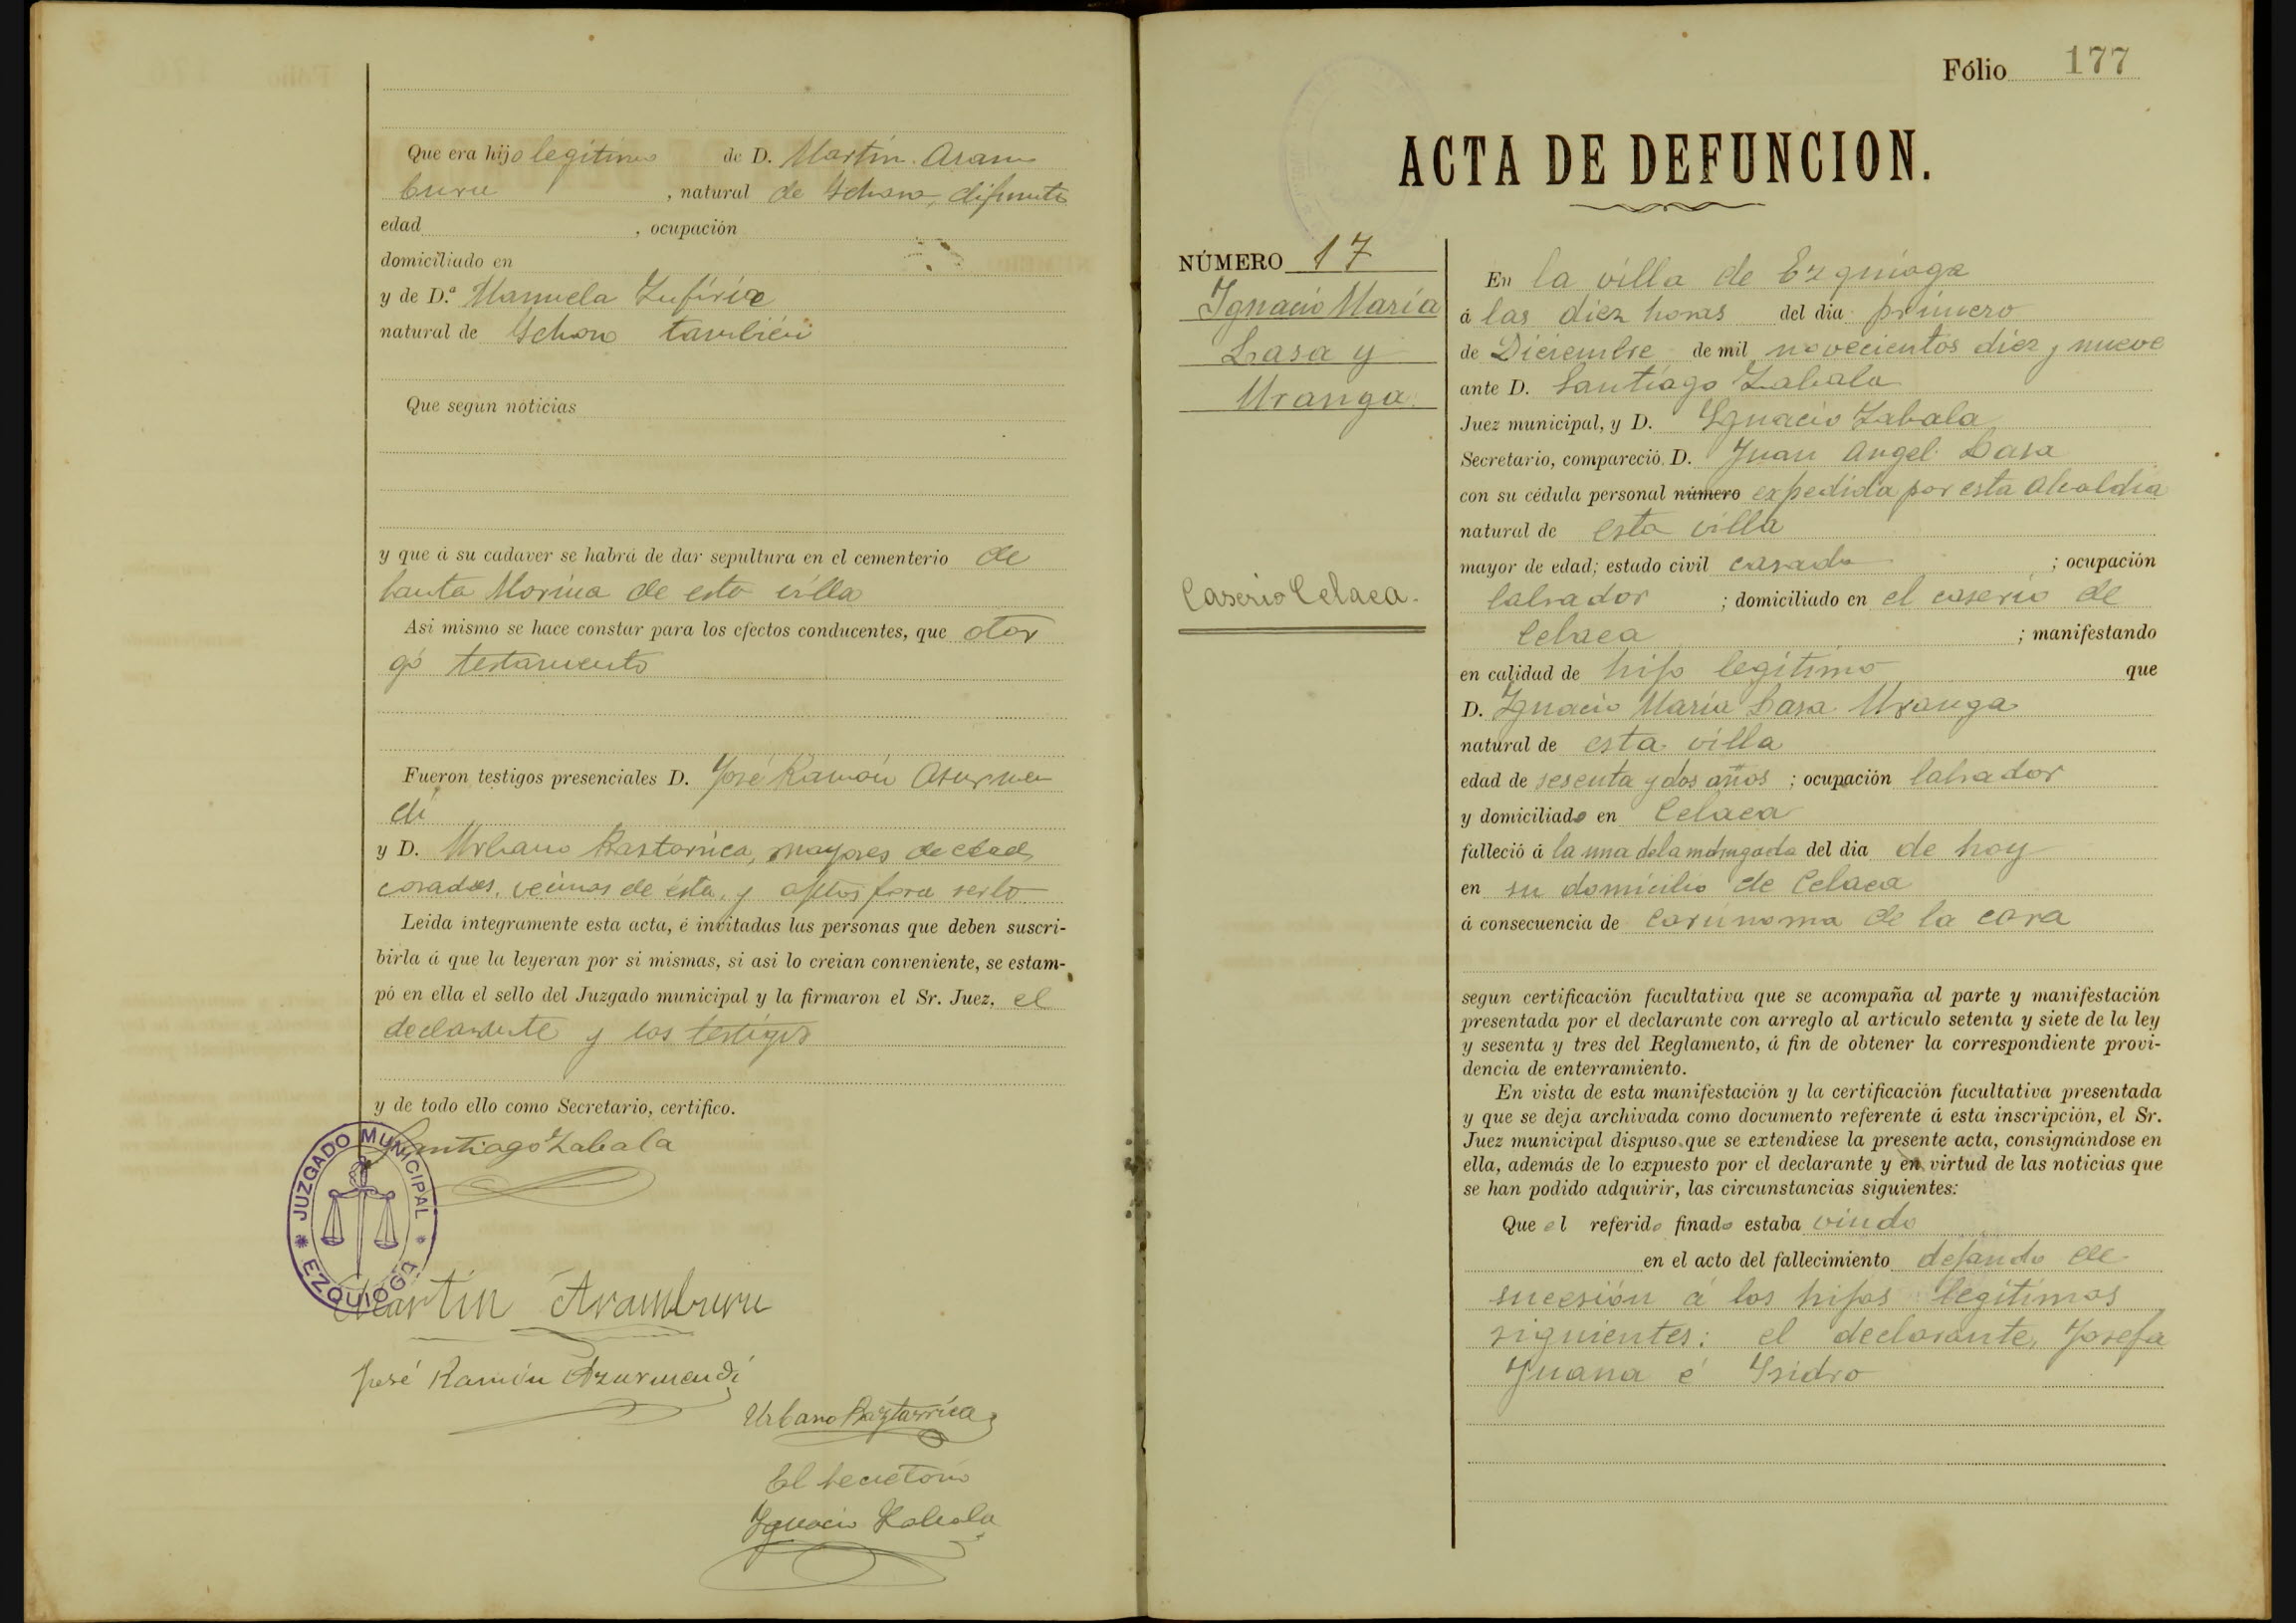 Que era hijo legitimo de D. Martín Aram
buru, natural de Ichaso, difunto
edad , ocupación
domiciliado en
y de D.ª Manuela Zufiria
natural de Ichaso también
Que segun noticias
y que á su cadaver se habrá de dar sepultura en el cementerio de
Santa Marina de esta villa
Asi mismo se hace constar para los efectos conducentes, que otor
gó testamento
Fueron testigos presenciales D. José Ramón Asurmen
di
y D. Urbano Bastarrica, mayores de edad,
casados, vecinos de ésta, y aptos para serlo
Leida integramente esta acta, é invitadas las personas que deben suscri-
birla á que la leyeran por si mismas, si asi lo creian conveniente, se estam-
pó en ella el sello del Juzgado municipal y la firmaron el Sr. Juez, el
declarante y los testigos
y de todo ello como Secretario, certifico.
Santiago Zabala
JUZGADO MUNICIPAL
EZQUIOGA
Martín Aramburu
José Ramón Azurmendi
Urbano Baztarrica
El Secretario
Ignacio Zabala
Fólio 177
ACTA DE DEFUNCION.
NÚMERO 17
Ignacio María
Lasa y
Uranga
Caserio Celaea.
En la villa de Ezquioga
á las diez horas del dia primero
de Diciembre de mil novecientos diez y nueve
ante D. Santiago Zabala
Juez municipal, y D. Ignacio Zabala
Secretario, compareció D. Juan Angel Lasa
con su cédula personal número expedida por esta Alcaldia
natural de esta villa
mayor de edad; estado civil casado ; ocupación
labrador ; domiciliado en el caserío de
Celaea ; manifestando
en calidad de hijo legítimo que
D. Ignacio María Lasa Uranga
natural de esta villa
edad de sesenta y dos años ; ocupación labrador
y domiciliado en Celaea
falleció á la una de la madrugada del dia de hoy
en su domicilio de Celaea
á consecuencia de carcinoma de la cara
segun certificación facultativa que se acompaña al parte y manifestación
presentada por el declarante con arreglo al artículo setenta y siete de la ley
y sesenta y tres del Reglamento, á fin de obtener la correspondiente provi-
dencia de enterramiento.
En vista de esta manifestación y la certificación facultativa presentada
y que se deja archivada como documento referente á esta inscripción, el Sr.
Juez municipal dispuso que se extendiese la presente acta, consignándose en
ella, además de lo expuesto por el declarante y en virtud de las noticias que
se han podido adquirir, las circunstancias siguientes:
Que el referido finado estaba viudo
en el acto del fallecimiento dejando de
sucesión á los hijos legítimos
siguientes: el declarante, Josefa
Juana é Isidro